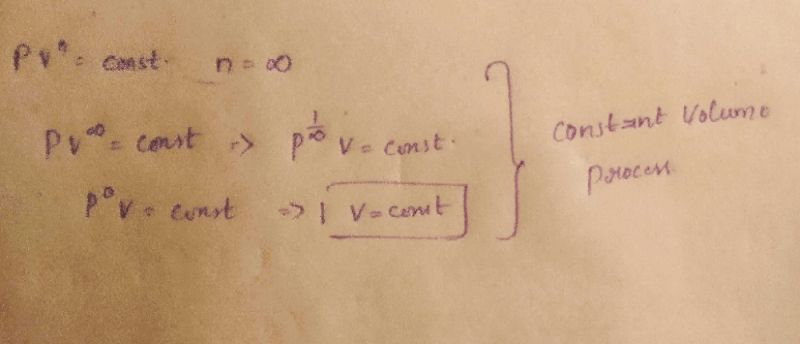 PVⁿ = const. n = ∞
PV^∞ = const => P^(1/∞) V = const.
P⁰V = const => | V = const
Constant Volume
Process